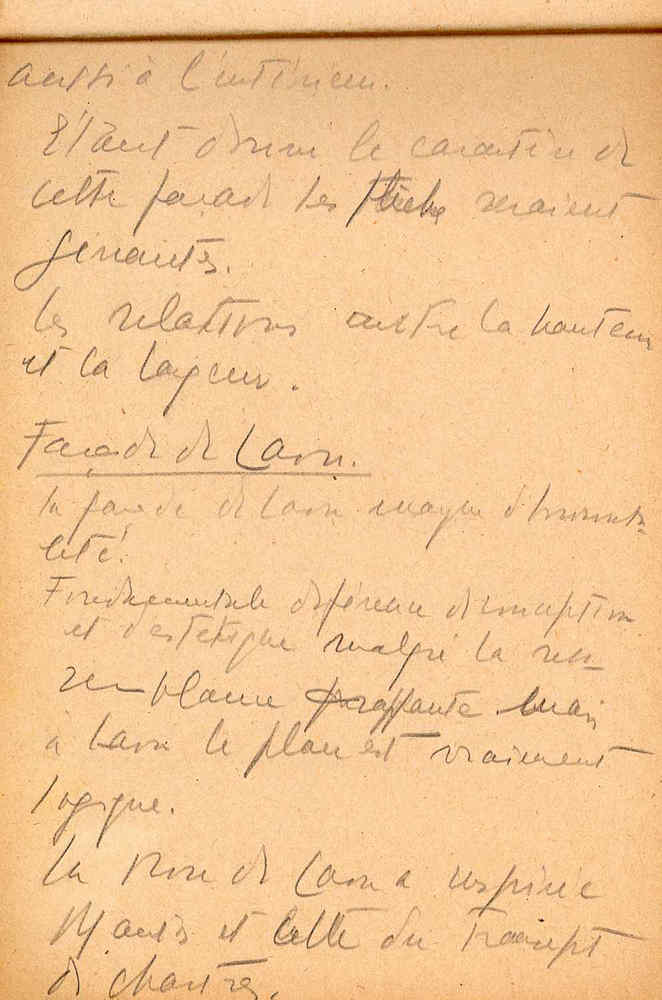 aussi à l'intérieur.
Étant donné le caractère de
cette façade les flèches seraient
gênantes.
les relations entre la hauteur
et la largeur.
Façade de Laon.
la façade de Laon manque d'horizonta-
lité.
Fondamentale différence de conception
et d'estetique malgré la res-
semblance frappante mais
à Laon le plan est vraiment
logique.
la Rose de Laon a inspirée
Mantes et celle du transept
de chartres.